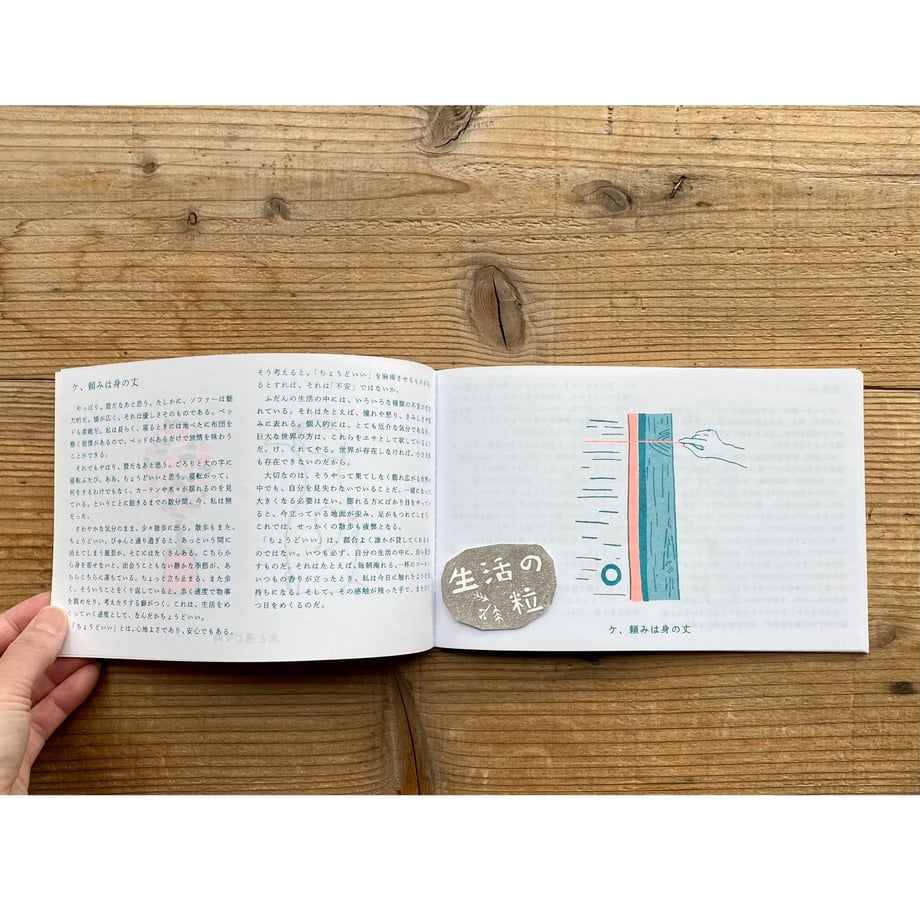 ケ、頼みは身の丈
やっぱり、畳だなあと思う。たしかに、ソファーは魅
力的だ。懐が広く、それは優しさそのものである。ベッ
ドも素敵だ。私は長らく、寝るときには地べたに布団を
敷く習慣があるので、ベッドがあるだけで旅情を味わう
ことができる。
それでもやはり、畳だなあと思う。ごろりと大の字に
寝転ぶたび、ああ、ちょうどいいと思う。寝転がって、
何をするわけでもなく、カーテンや木々が揺れるのを見
ている。ということに飽きるまでの数分間、今、私は無
だった。
さわやかな気分のまま、少々散歩に出る。散歩もまた、
ちょうどいい。びゅんと通り過ぎると、あっという間に
消えてしまう風景が、そこにはたくさんある。こちらか
ら身を寄せないと、出会うこともない静かな季節が、あ
ちらこちらに落ちている。ちょっと立ち止まる、また歩
く。そういうことをくり返していると、歩く速度で物事
を眺めたり、考えたりする癖がつく。これは、生活をめ
くっていく速度として、なんだかちょうどいい。
「ちょうどいい」とは、心地よさであり、安心でもある。
そう考えると、「ちょうどいい」を麻痺させるものがあ
るとすれば、それは「不安」ではないか。
ふだんの生活の中には、いろいろな種類の不安が含ま
れている。それはたとえば、憧れや怒り、さみしさや
みに表れる。個人的には、とても厄介な気分であるが、
巨大な世界の方は、これらをエサとして欲しているよう
だ。け、くれてやる。世界が存在しなければ、小さな私
も存在できないのだから。
大切なのは、そうやって果てしなく膨れ広がる世界の
中でも、自分を見失わないでいることだ。一緒になって、
大きくなる必要はない。膨れる方にばかり目をやってい
ると、今立っている地面が歪み、足がもつれてしまう。
これでは、せっかくの散歩も疲弊となる。
「ちょうどいい」は、都合よく誰かが貸してくれるも
のではない。いつも必ず、自分の生活の中に、自ら見出
すものだ。それはたとえば、毎朝淹れる、一杯のコーヒー。
いつもの香りが立ったとき、私は今日に触れたような
持ちになる。そして、その感触が残った手で、またひと
つ日をめくるのだ。
生活の
粒
ケ、頼みは身の丈